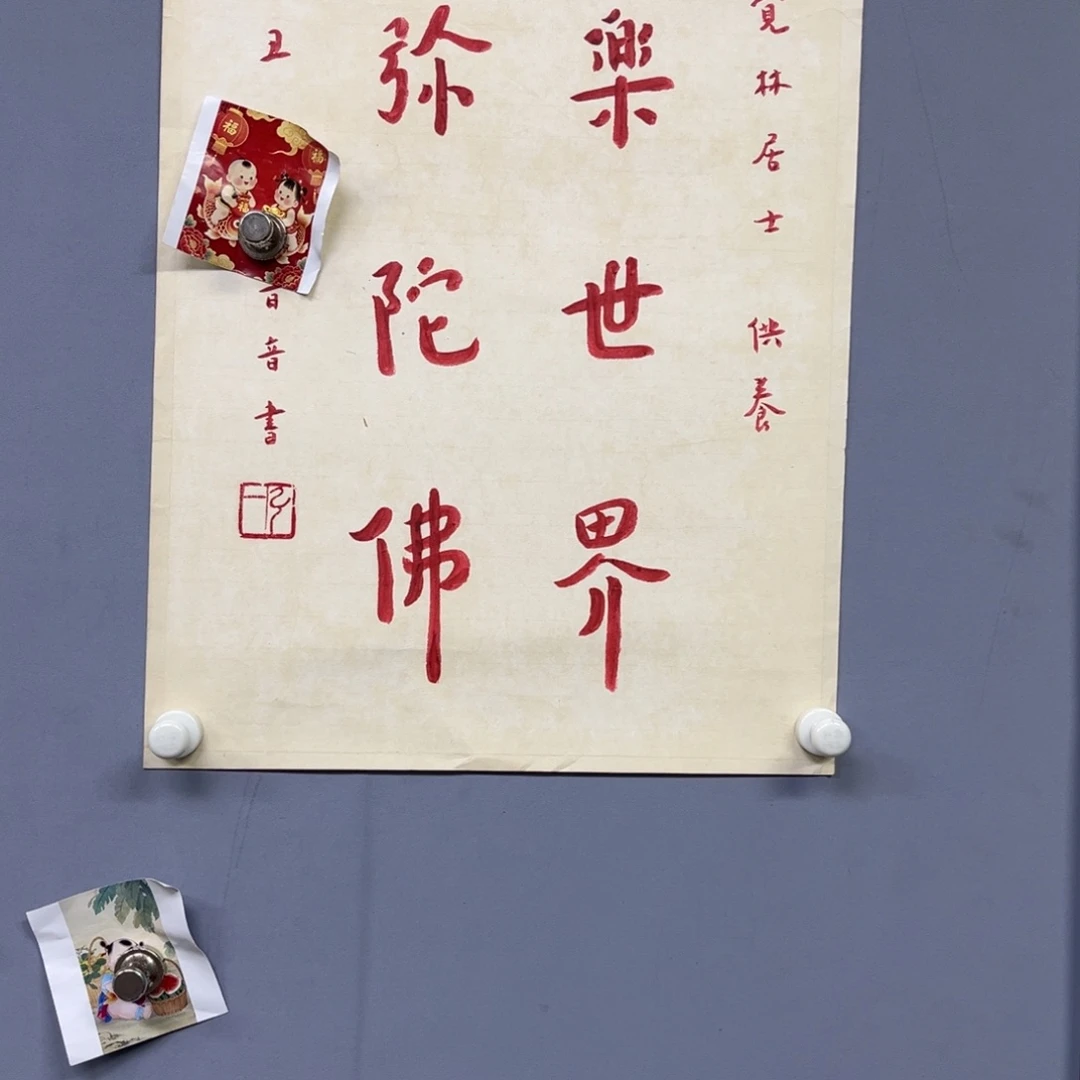 覓林居士 供養
樂世界
弥陀佛
丑
音書
福
福